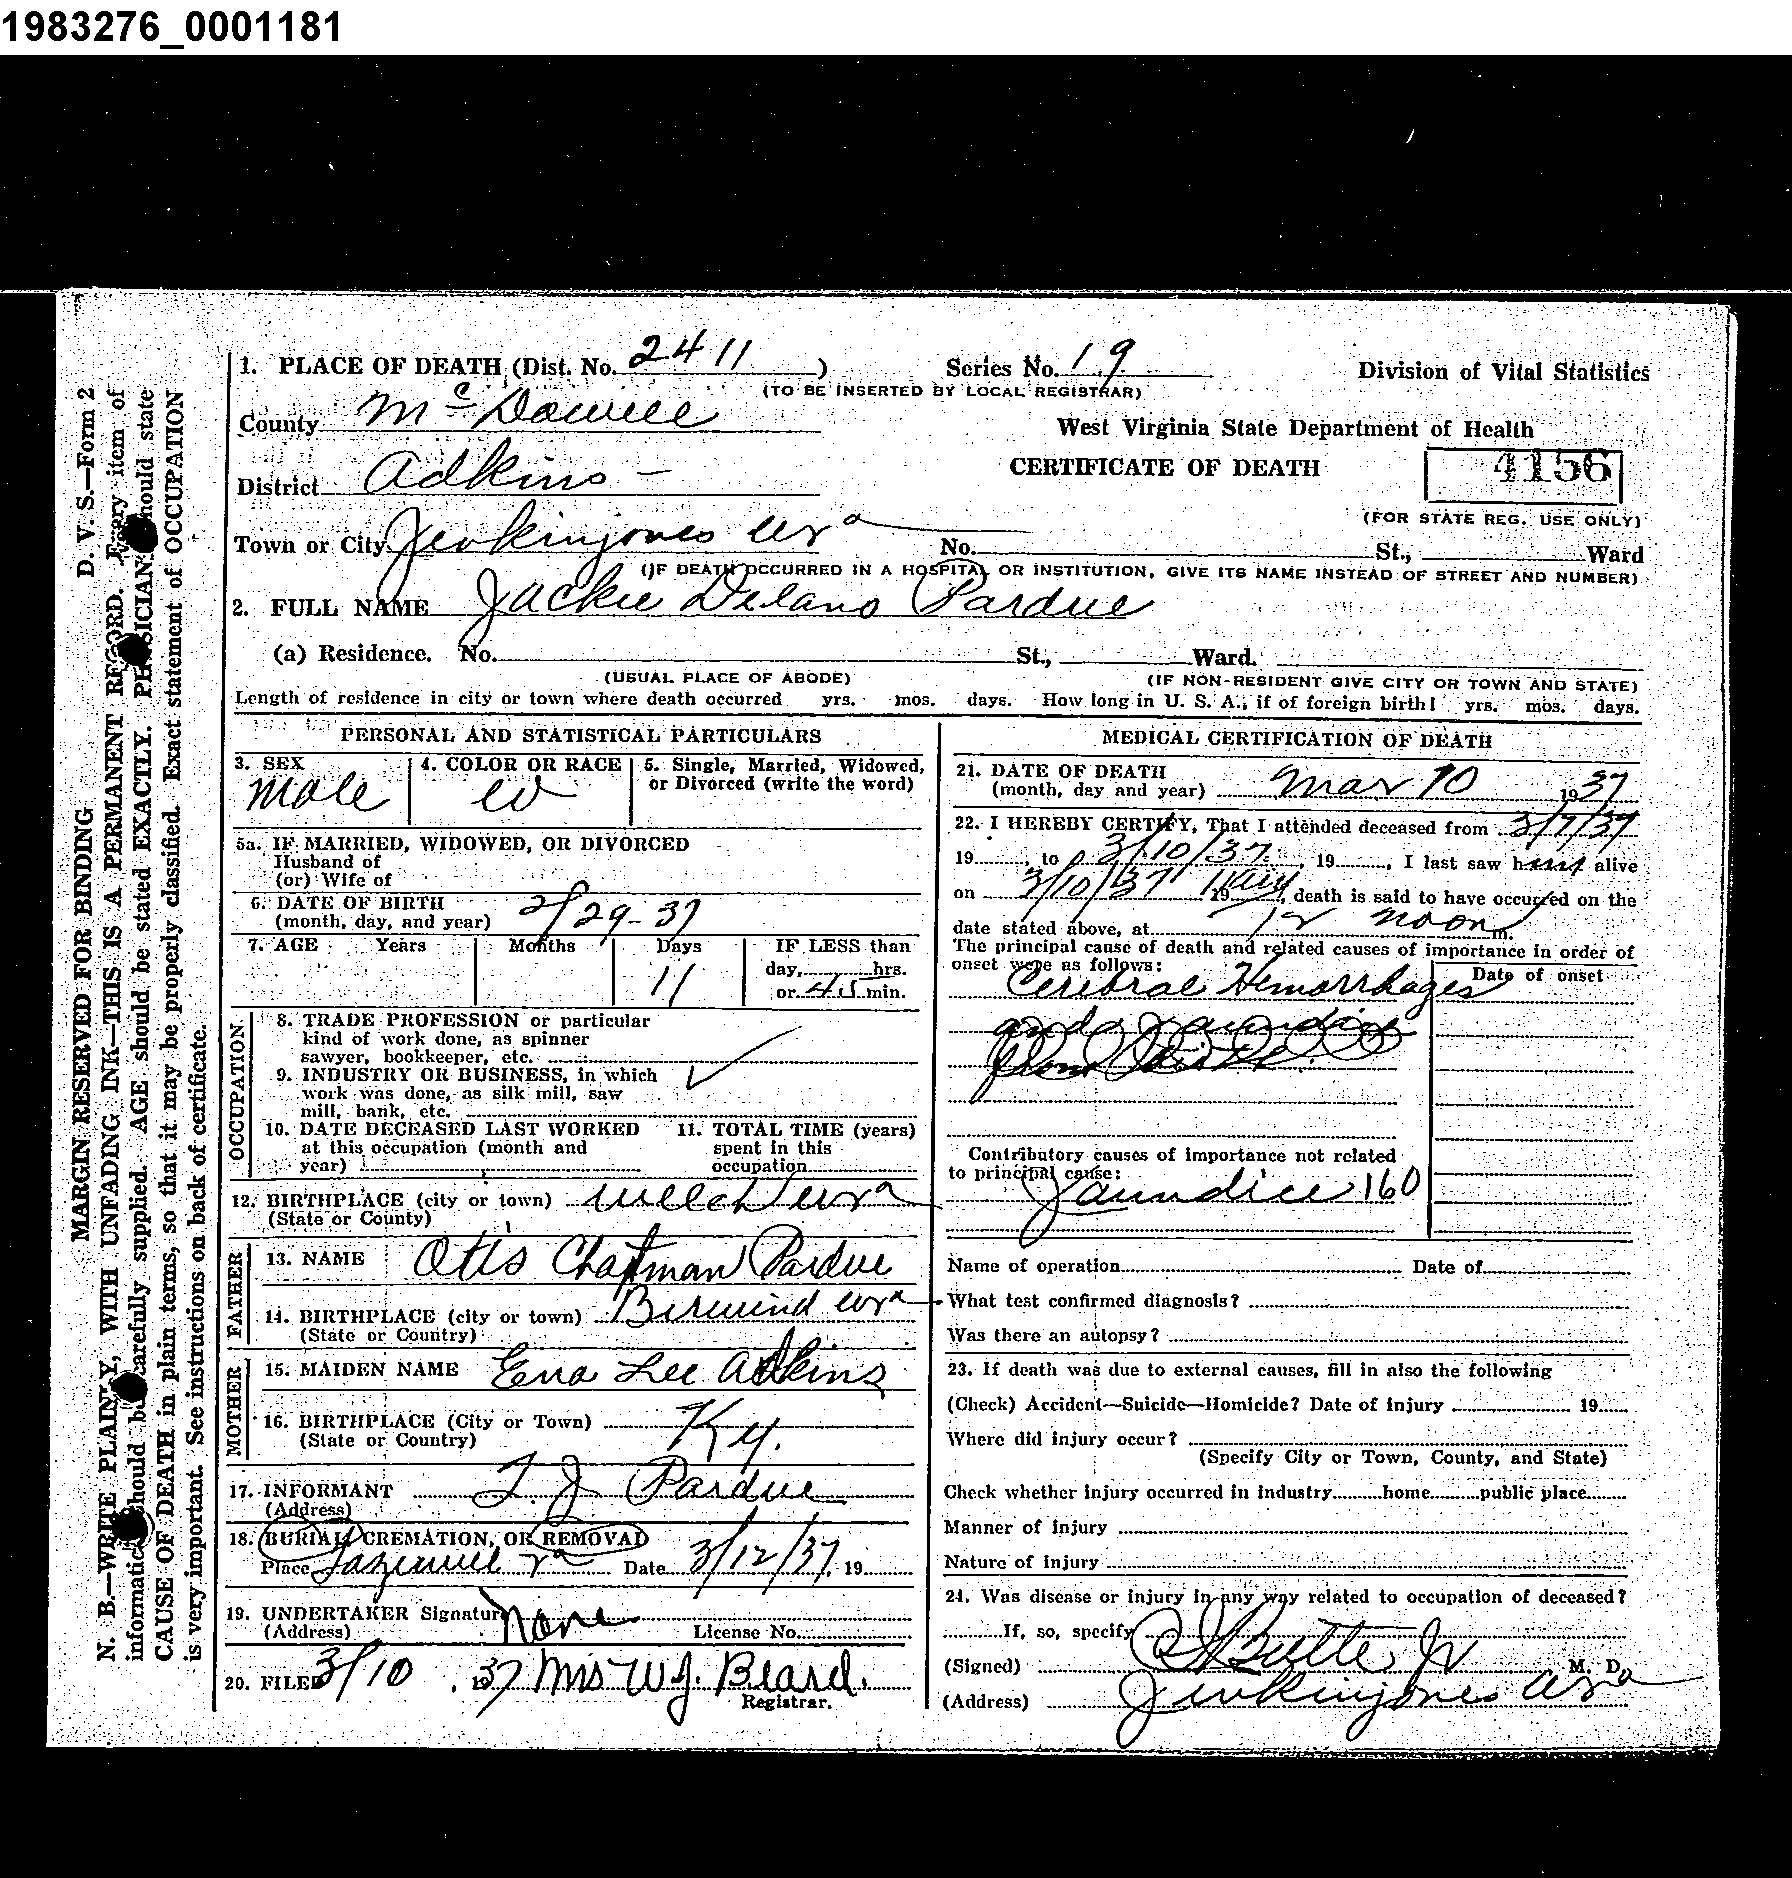 1983276_0001181
1. PLACE OF DEATH (Dist. No. 2411 ) Series No. 19 Division of Vital Statistics
(TO BE INSERTED BY LOCAL REGISTRAR)
County McDowell West Virginia State Department of Health
District Adkins - CERTIFICATE OF DEATH 4156
(FOR STATE REG. USE ONLY)
Town or City Jenkinjones W Va No. St., Ward
(IF DEATH OCCURRED IN A HOSPITAL OR INSTITUTION, GIVE ITS NAME INSTEAD OF STREET AND NUMBER)
2. FULL NAME Jackie Delano Pardue
(a) Residence. No. St., Ward.
(USUAL PLACE OF ABODE) (IF NON-RESIDENT GIVE CITY OR TOWN AND STATE)
Length of residence in city or town where death occurred yrs. mos. days. How long in U. S. A., if of foreign birth? yrs. mos. days.
PERSONAL AND STATISTICAL PARTICULARS
3. SEX 4. COLOR OR RACE 5. Single, Married, Widowed,
or Divorced (write the word)
Male W
5a. IF MARRIED, WIDOWED, OR DIVORCED
Husband of
(or) Wife of
6. DATE OF BIRTH
(month, day, and year) 2/29-37
7. AGE Years Months Days IF LESS than
11 day, hrs.
or 45 min.
OCCUPATION
8. TRADE PROFESSION or particular
kind of work done, as spinner
sawyer, bookkeeper, etc.
9. INDUSTRY OR BUSINESS, in which
work was done, as silk mill, saw
mill, bank, etc.
10. DATE DECEASED LAST WORKED 11. TOTAL TIME (years)
at this occupation (month and spent in this
year) occupation
12. BIRTHPLACE (city or town) Welch W Va
(State or County)
FATHER
13. NAME Otis Chapman Pardue
14. BIRTHPLACE (city or town) Berwind W Va
(State or Country)
MOTHER
15. MAIDEN NAME Ena Lee Adkins
16. BIRTHPLACE (City or Town) Ky.
(State or Country)
17. INFORMANT T. J Pardue
(Address)
18. BURIAL, CREMATION, OR REMOVAL
Place Tazewell Va Date 3/12/37 19
19. UNDERTAKER Signature None
(Address) License No.
20. FILED 3/10 , 1937 Mrs W J. Beard.
Registrar.
MEDICAL CERTIFICATION OF DEATH
21. DATE OF DEATH
(month, day and year) Mar 10 1937
22. I HEREBY CERTIFY, That I attended deceased from 3/7/37
19 , to 3/10/37 , 19 , I last saw him alive
on 3/10/37 19 , death is said to have occurred on the
date stated above, at 12 noon m.
The principal cause of death and related causes of importance in order of
onset were as follows: Date of onset
Cerebral Hemorrhages
and Jaundice
from
Contributory causes of importance not related
to principal cause:
Jaundice 160
Name of operation Date of
What test confirmed diagnosis?
Was there an autopsy?
23. If death was due to external causes, fill in also the following
(Check) Accident—Suicide—Homicide? Date of injury 19
Where did injury occur?
(Specify City or Town, County, and State)
Check whether injury occurred in industry home public place
Manner of injury
Nature of injury
24. Was disease or injury in any way related to occupation of deceased?
If, so, specify
(Signed) Jr M. D.
(Address) Jenkinjones W Va
D. V. S.—Form 2
MARGIN RESERVED FOR BINDING
N. B.—WRITE PLAINLY, WITH UNFADING INK—THIS IS A PERMANENT RECORD. Every item of
information should be carefully supplied. AGE should be stated EXACTLY. PHYSICIANS should state
CAUSE OF DEATH in plain terms, so that it may be properly classified. Exact statement of OCCUPATION
is very important. See instructions on back of certificate.